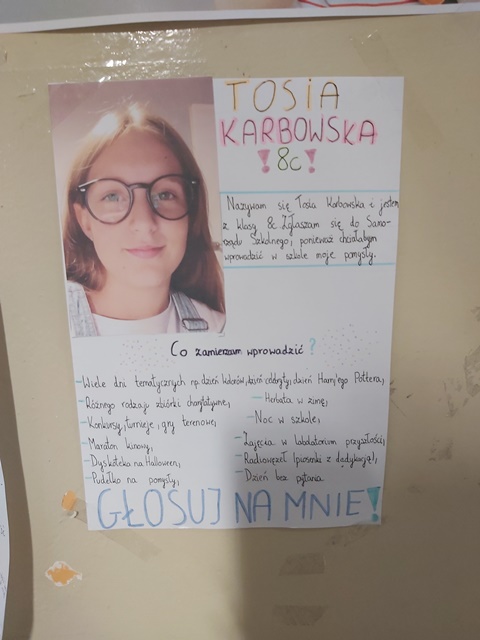 TOSIA
KARBOWSKA
!8c!
Nazywam się Tosia Karbowska i jestem
z klasy 8c. Zgłaszam się do Samo-
rządu Szkolnego, ponieważ chciałabym
wprowadzić w szkole moje pomysły.
Co zamierzam wprowadzić?
-Wiele dni tematycznych np. dzień kolorów, dzień Harry'ego Pottera,
-Różnego rodzaju zbiórki charytatywne,
-Herbata w zimę,
-Konkursy, turnieje, gry terenowe,
-Noc w szkole,
-Maraton kinowy,
-Zajęcia w laboratorium przyszłości,
-Dyskoteka na Halloween,
-Radiowęzeł (piosenki z dedykacją),
-Pudełko na pomysły,
-Dzień bez pytania.
GŁOSUJ NA MNIE!